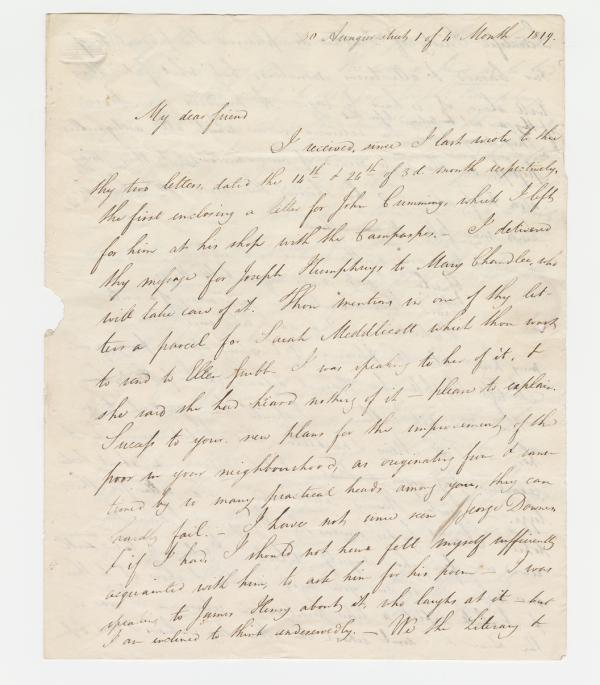 Aungier street 1 of 4 Month 1819.
My dear friend
I received, since I last wrote to thee
thy two letters, dated the 14th & 24th of 3d. month respectively,
the first enclosing a letter for John Cumming, which I left
for him at his shop with the Campaspes. — I delivered
thy message for Joseph Humphrys to Mary Chandlee, who
will take care of it. Thou mentions in one of thy let-
ters a parcel for Sarah Meddlicott which thou wast
to send to Ellen Grubb. I was speaking to her of it, &
she said she had heard nothing of it — please to explain.
Success to your new plans for the improvement of the
poor in your neighbourhood, as originating from & sanc-
tioned by so many practical heads among you, they can
hardly fail. — I have not since seen George Downes
& if I had, I should not have felt myself sufficiently
acquainted with him, to ask him for his poem — I was
speaking to James Henry about it, who laughs at it — but
I am inclined to think undeservedly. — We the Literary &